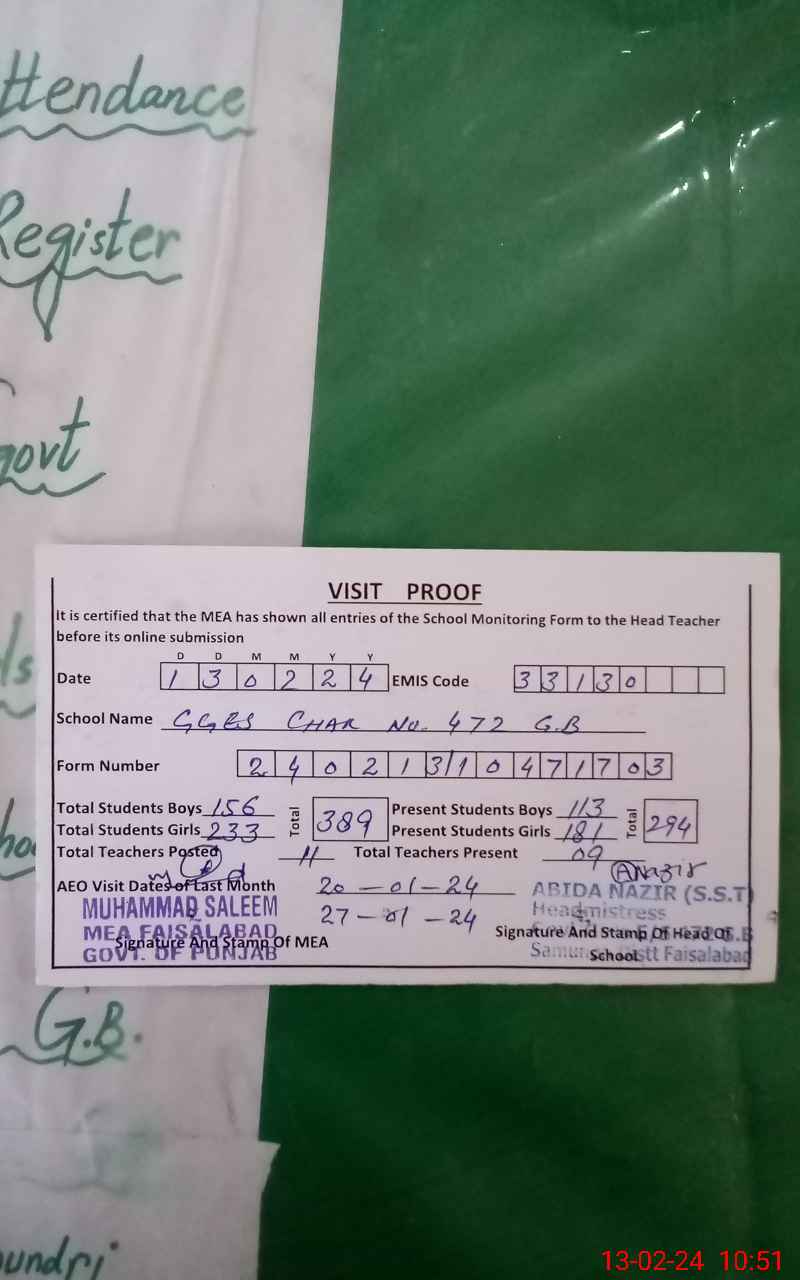 ttendance
Register
govt
ls
VISIT PROOF
It is certified that the MEA has shown all entries of the School Monitoring Form to the Head Teacher
before its online submission
D D M M Y Y
Date 1 3 0 2 2 4 EMIS Code 3 3 1 3 0
School Name GGES CHAK No. 472 G.B
Form Number 2 4 0 2 1 3 1 0 4 7 1 7 0 3
Total Students Boys 156 Total 389 Present Students Boys 113 Total 294
Total Students Girls 233 Present Students Girls 181
Total Teachers Posted 11 Total Teachers Present 09
ANazir
AEO Visit Dates of Last Month 20-01-24
27-01-24
MUHAMMAD SALEEM
MEA FAISALABAD
GOVT. OF PUNJAB
Signature And Stamp Of MEA
ABIDA NAZIR (S.S.T)
Headmistress
Signature And Stamp Of Head Of
School
Faisalabad
ho
G.B.
undri
13-02-24 10:51